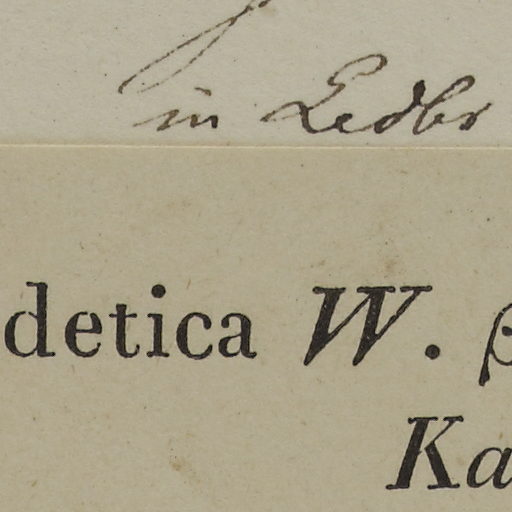 in Ledbr
detica W. β
Ka